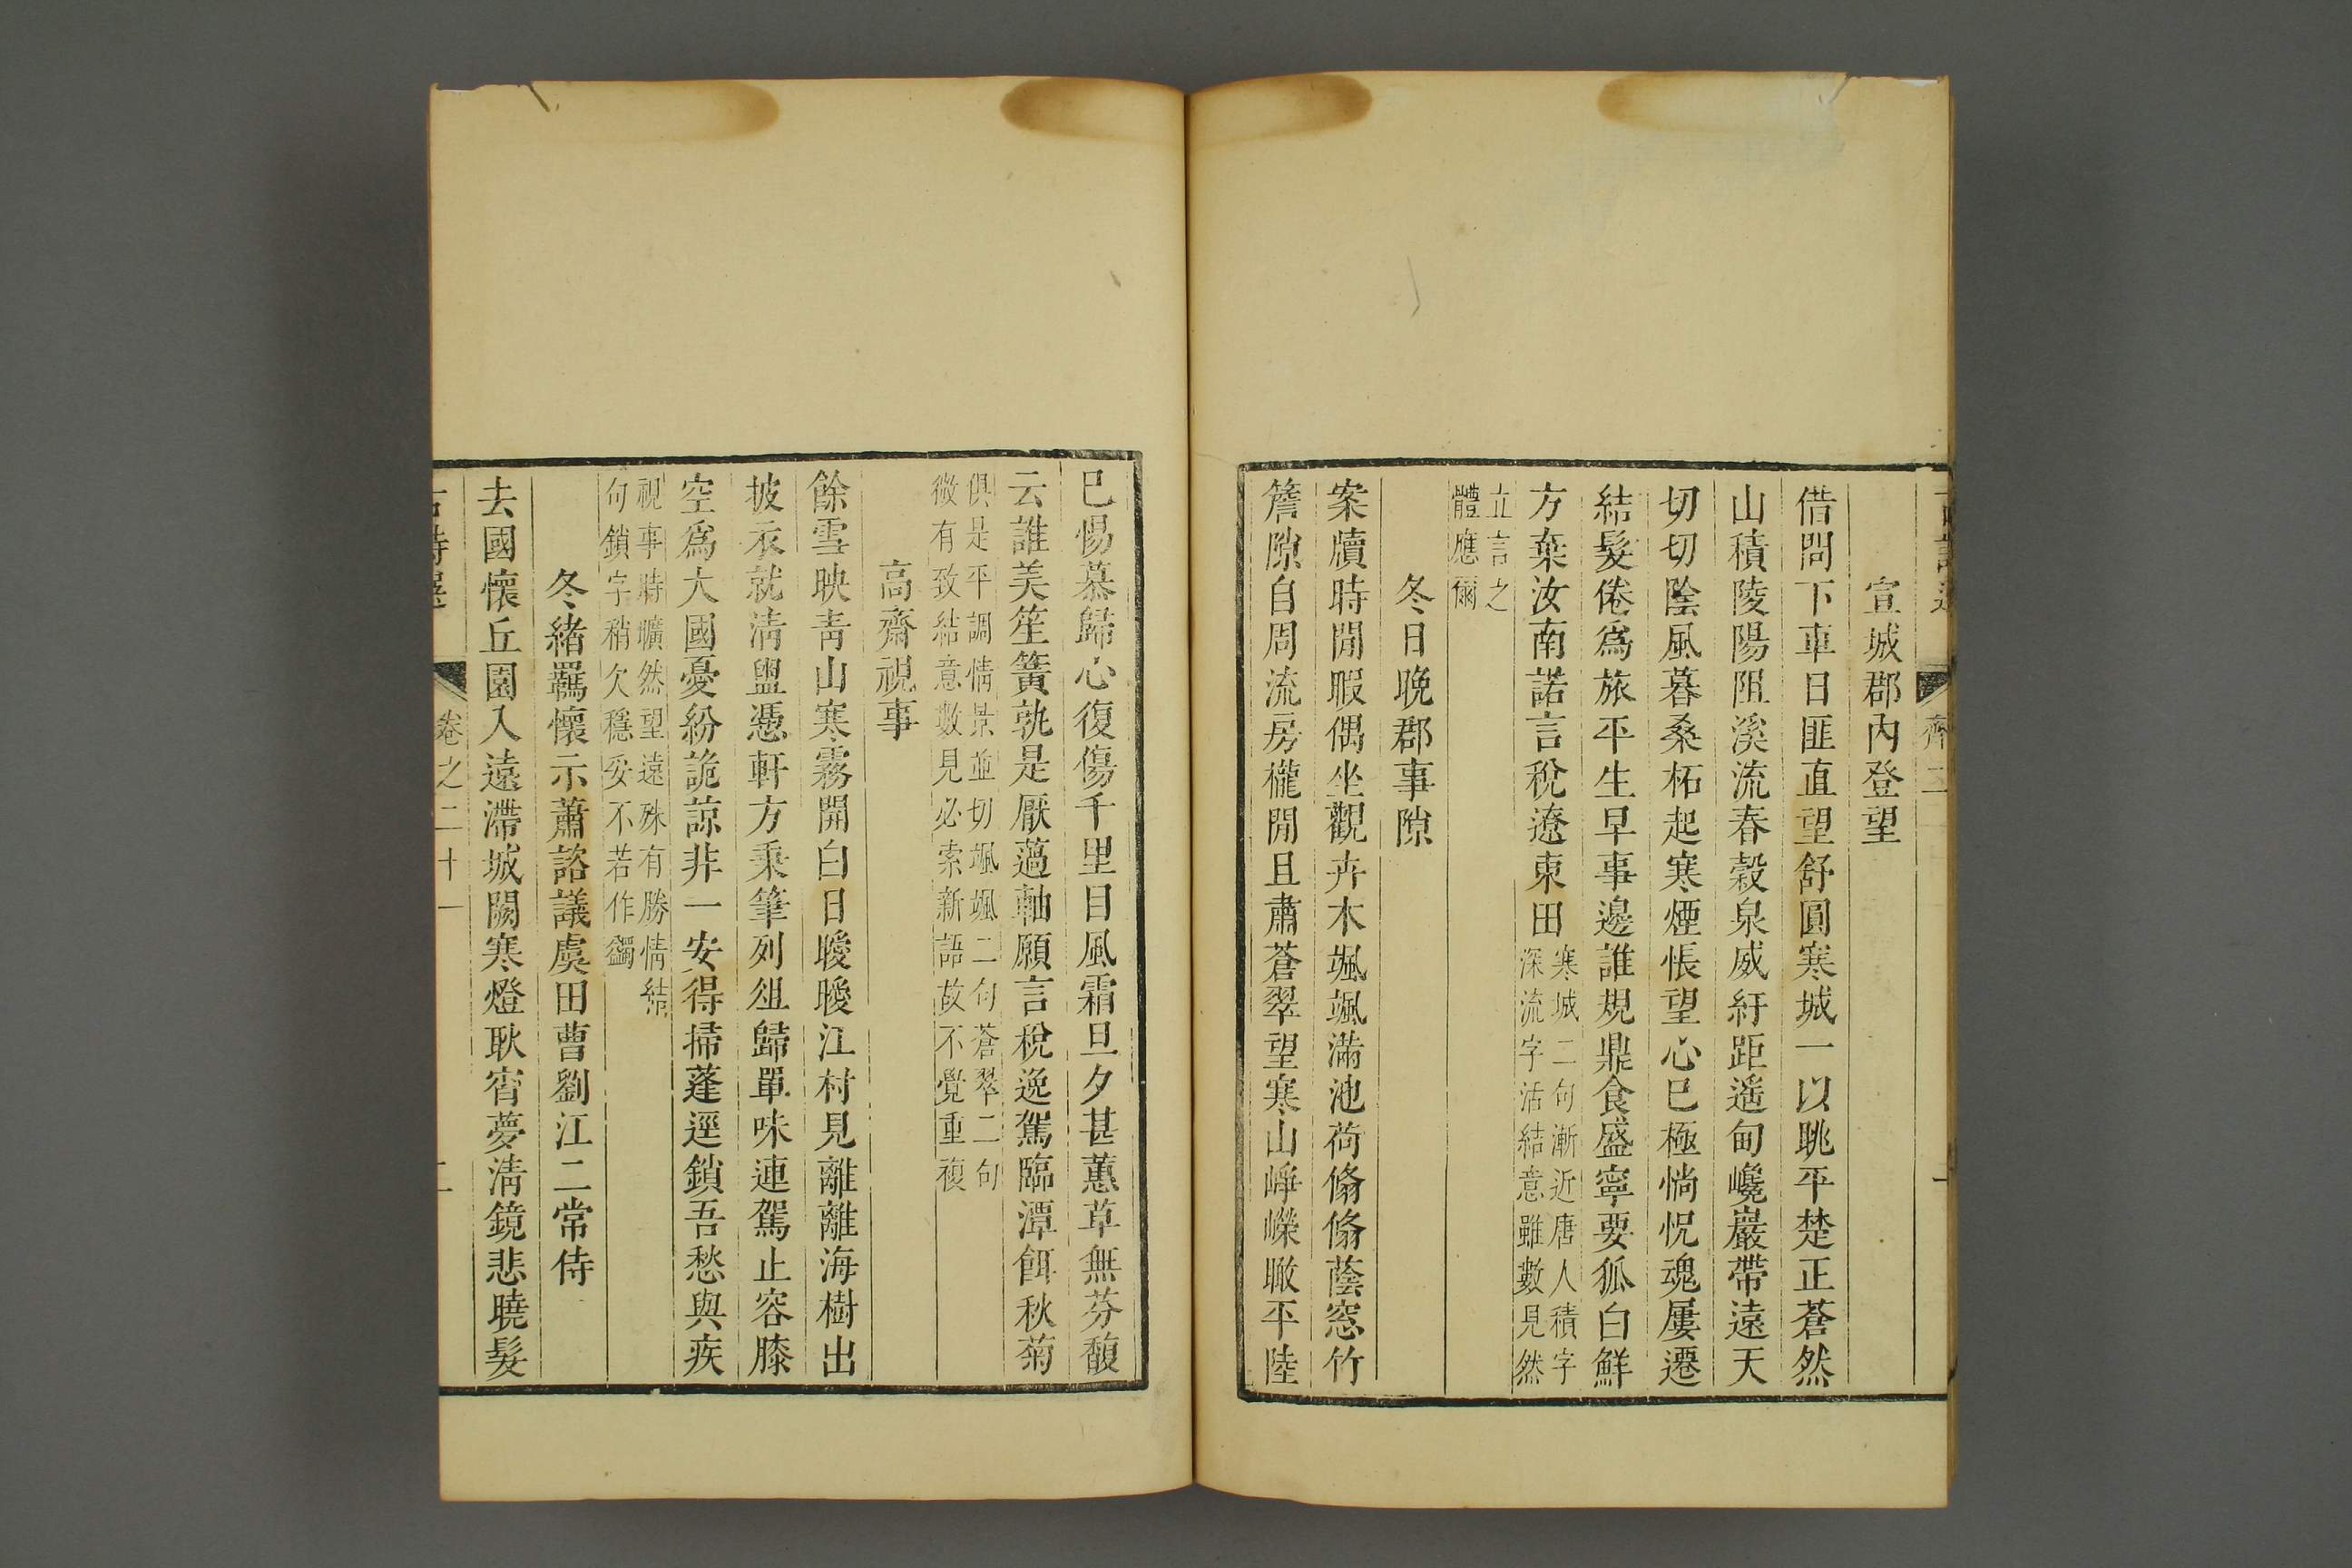 齊二
宣城郡內登望
借問下車日匪直望舒圓寒城一以眺平楚正蒼然
山積陵陽阻溪流春穀泉威紆距遙甸巉巖帶遠天
切切陰風暮桑柘起寒煙悵望心已極惝怳魂屢遷
結髮倦爲旅平生早事邊誰規鼎食盛寧要狐白鮮
方棄汝南諾言稅遼東田
寒城二句漸近唐人積字
深流字活結意雖數見然
立言之
體應爾
冬日晚郡事隙
案牘時閒暇偶坐觀卉木颯颯滿池荷翛翛蔭窓竹
簷隙自周流房櫳閒且肅蒼翠望寒山崢嶸瞰平陸
巳惕慕歸心復傷千里目風霜旦夕甚蕙草無芬馥
云誰美笙簧孰是厭薖軸願言稅逸駕臨潭餌秋菊
俱是平調情景並切颯颯二句蒼翠二句
微有致結意數見必索新語故不覺重複
高齋視事
餘雪映青山寒霧開白日曖曖江村見離離海樹出
披衣就淸盥憑軒方秉筆列俎歸單味連駕止容膝
空爲大國憂紛詭諒非一安得掃蓬逕鎖吾愁與疾
視事時曠然望遠殊有勝情結
句鎖字稍欠穩妥不若作蠲
冬緒羈懷示蕭諮議虞田曹劉江二常侍
去國懷丘園入遠滯城闕寒燈耿宵夢淸鏡悲曉髮
古詩選
卷之二十一
二